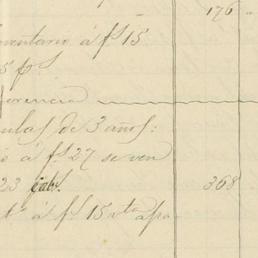 176
nventario á fs 15
5 ps.
ferencia
mulas de 3 años:
io á fs 27 se ven
23 cabs. 368
á fs 15 vta apa